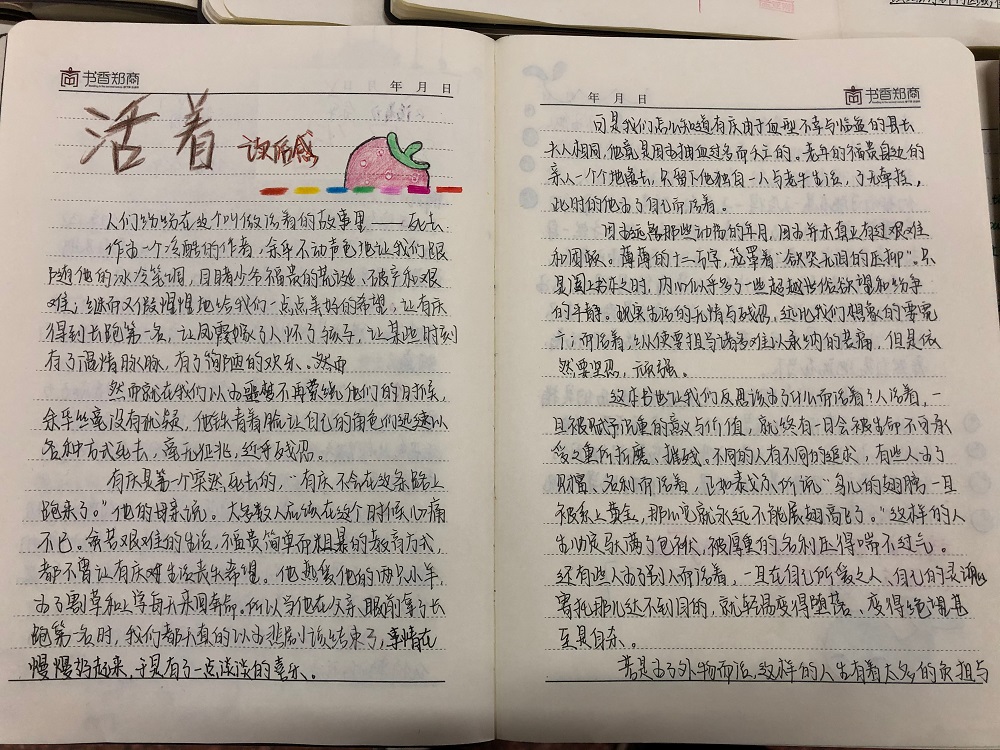 书香郑商
年 月 日
活着 读后感
人们纷纷在这个叫做活着的故事里——死去
作为一个冷酷的作者,余华不动声色地让我们跟
随他的冰冷笔调,目睹少爷福贵的荒诞、不羁和艰
难;继而又假惺惺地给我们一点点美好的希望,让有庆
得到长跑第一名,让凤霞嫁了人怀了孩子,让某些时刻
有了温情脉脉,有了绚丽的欢乐。然而
然而就在我们以为噩梦不再萦绕他们的时候,
余华丝毫没有犹疑,他铁青着脸让自己的角色们迅速以
各种方式死去,毫无征兆,近乎残忍。
有庆是第一个突然死去的,“有庆不会在这条路上
跑来了。”他的母亲说。大多数人应该在这个时候心痛
不已。贫苦艰难的生活,福贵简单而粗暴的教育方式,
都不曾让有庆对生活丧失希望。他热爱他的两只小羊,
为了割草和上学每天来回奔命。所以当他在父亲眼前拿了长
跑第一名时,我们都天真的以为悲剧该结束了,事情在
慢慢好起来,于是有了一点淡淡的喜乐。
年 月 日
书香郑商
可是我们怎么知道有庆由于血型不幸与临盆的县长
夫人相同,他竟是因为抽血过多而死亡的。老年的福贵身边的
亲人一个个地离去,只留下他独自一人与老牛生活,了无牵挂,
此时的他为了自己而活着。
因为远离那些动荡的年月,因为并未真正有过艰难
和困顿。薄薄的十二万字,笼罩着“欲哭无泪的压抑”。只
是阖上书本之时,内心似乎多了一些超越世俗欲望和纷争
的平静。现实生活的无情与残忍,远比我们想象的要宽
广;而活着,纵使要担当诸多难以承纳的苦痛,但是依
然要坚忍,顽强。
这本书也让我们反思该为了什么而活着?人活着,一
旦被赋予沉重的意义与价值,就终有一日会被生命不可承
受之重所折磨、摧残。不同的人有不同的追求,有些人为了
财富、名利而活着,正如泰戈尔所说“鸟儿的翅膀一旦
被系上黄金,那么它就永远不能展翅高飞了。”这样的人
生必定驮满了包袱,被厚重的名利压得喘不过气。
还有些人为了别人而活着,一旦在自己所爱之人、自己的灵魂
寄托那儿达不到目的,就轻易变得堕落、变得绝望甚
至是自杀。
若是为了外物而活,这样的人生有着太多的负担与